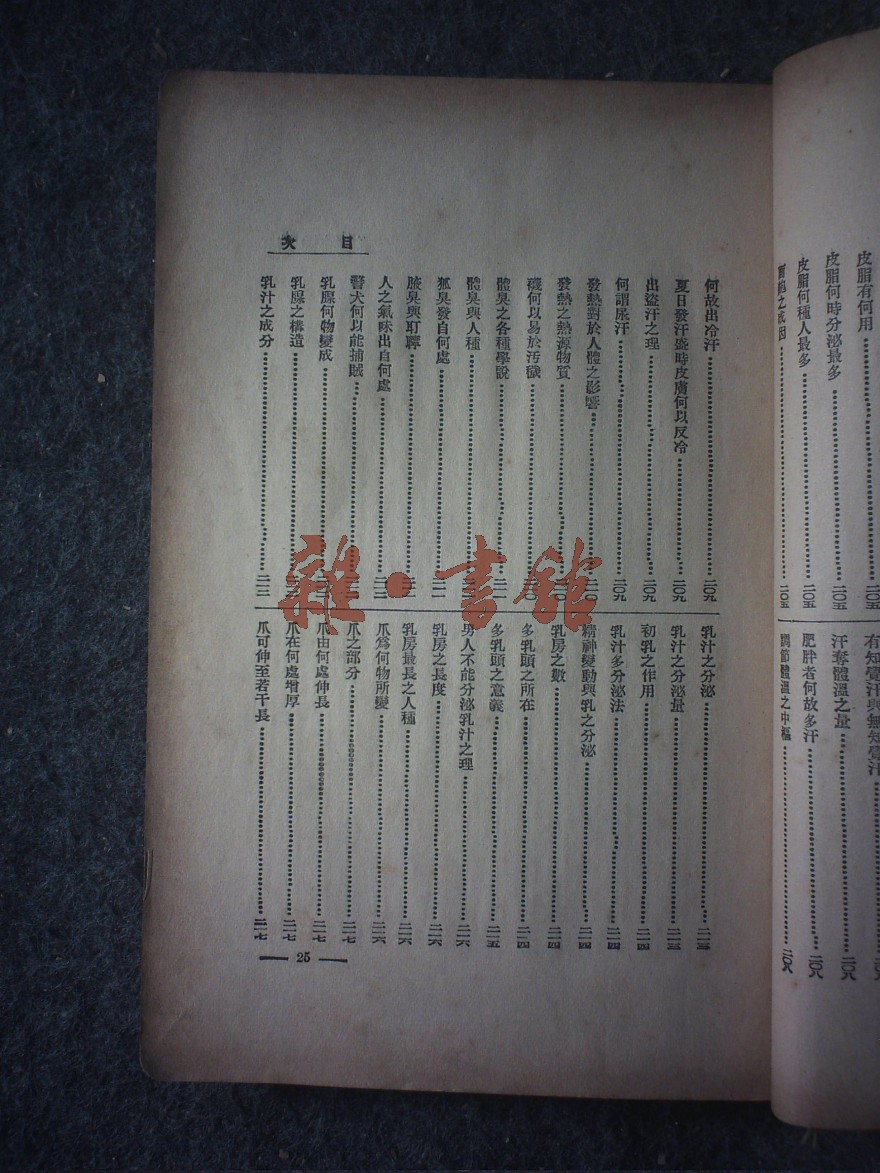 皮脂有何用……二〇五
皮脂何時分泌最多……二〇五
皮脂何種人最多……二〇五
之成因……二〇五
有知覺汗與無知覺汗……
汗奪體溫之量……二〇八
肥胖者何故多汗……二〇八
調節體溫之中樞……二〇八
目次
何故出冷汗……二〇九
夏日發汗盛時皮膚何以反冷……二〇九
出盜汗之理……二〇九
何謂尿汗……二〇九
發熱對於人體之影響……二一〇
發熱之熱源物質……
襪何以易於污穢……
體臭之各種學說……
體臭與人種……
狐臭發自何處……
腋臭與耵聹……
人之氣味出自何處……
警犬何以能捕賊……
乳腺何物變成……
乳腺之構造……
乳汁之成分……二一三
乳汁之分泌……二一三
乳汁之分泌量……二一三
初乳之作用……二一四
乳汁多分泌法……二一四
精神變動與乳之分泌……二一四
乳房之數……二一四
多乳頭之所在……二一四
多乳頭之意義……二一五
男人不能分泌乳汁之理……二一六
乳房之長度……二一六
乳房最長之人種……二一六
爪爲何物所變……二一六
爪之部分……二一七
爪由何處伸長……二一七
爪在何處增厚……二一七
爪可伸至若干長……二一七
25
雜·書館